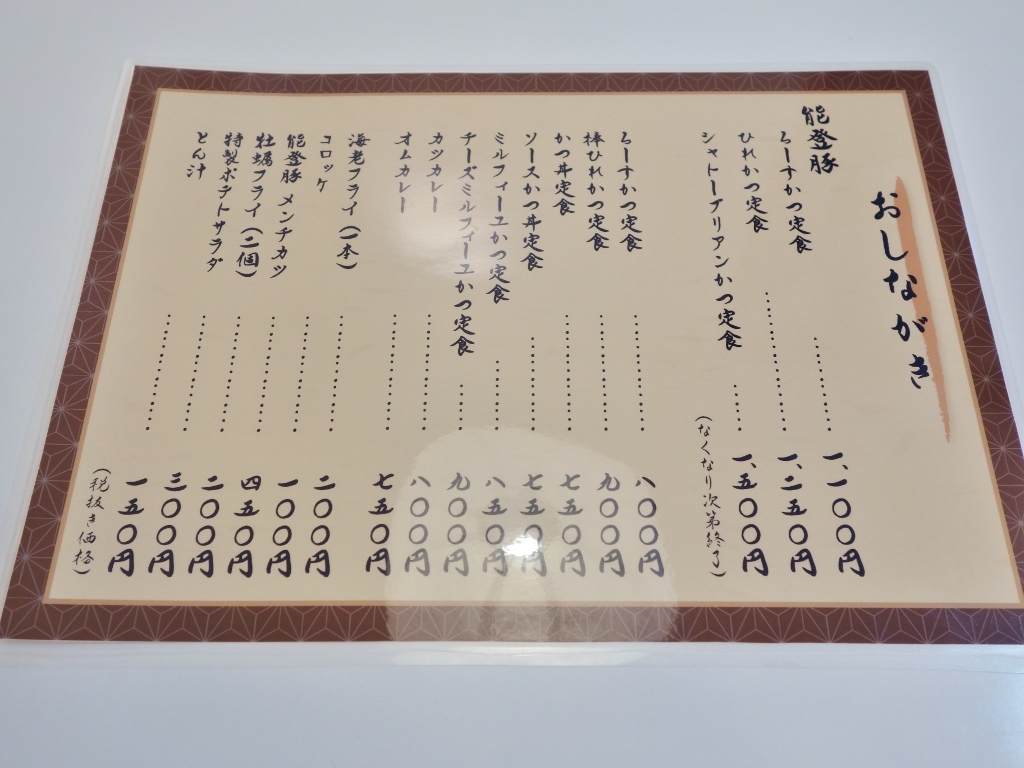 おしながき
能登豚
ろーすかつ定食 ……… 一、一〇〇円
ひれかつ定食 ……… 一、二五〇円
シャトーブリアンかつ定食 ……… 一、五〇〇円
(なくなり次第終了)
ろーすかつ定食 ……… 八〇〇円
棒ひれかつ定食 ……… 九〇〇円
かつ丼定食 ……… 七五〇円
ソースかつ丼定食 ……… 七五〇円
ミルフィーユかつ定食 ……… 八五〇円
チーズミルフィーユかつ定食 ……… 九〇〇円
カツカレー ……… 八〇〇円
オムカレー ……… 七五〇円
海老フライ(一本) ……… 二〇〇円
コロッケ ……… 一〇〇円
能登豚 メンチカツ ……… 四五〇円
牡蠣フライ(二個) ……… 二〇〇円
特製ポテトサラダ ……… 三〇〇円
とん汁 ……… 一五〇円
(税抜き価格)